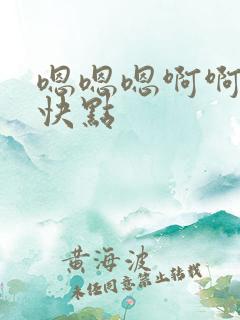 嗯嗯嗯啊啊
快點
黄海波
未经同意禁止转载